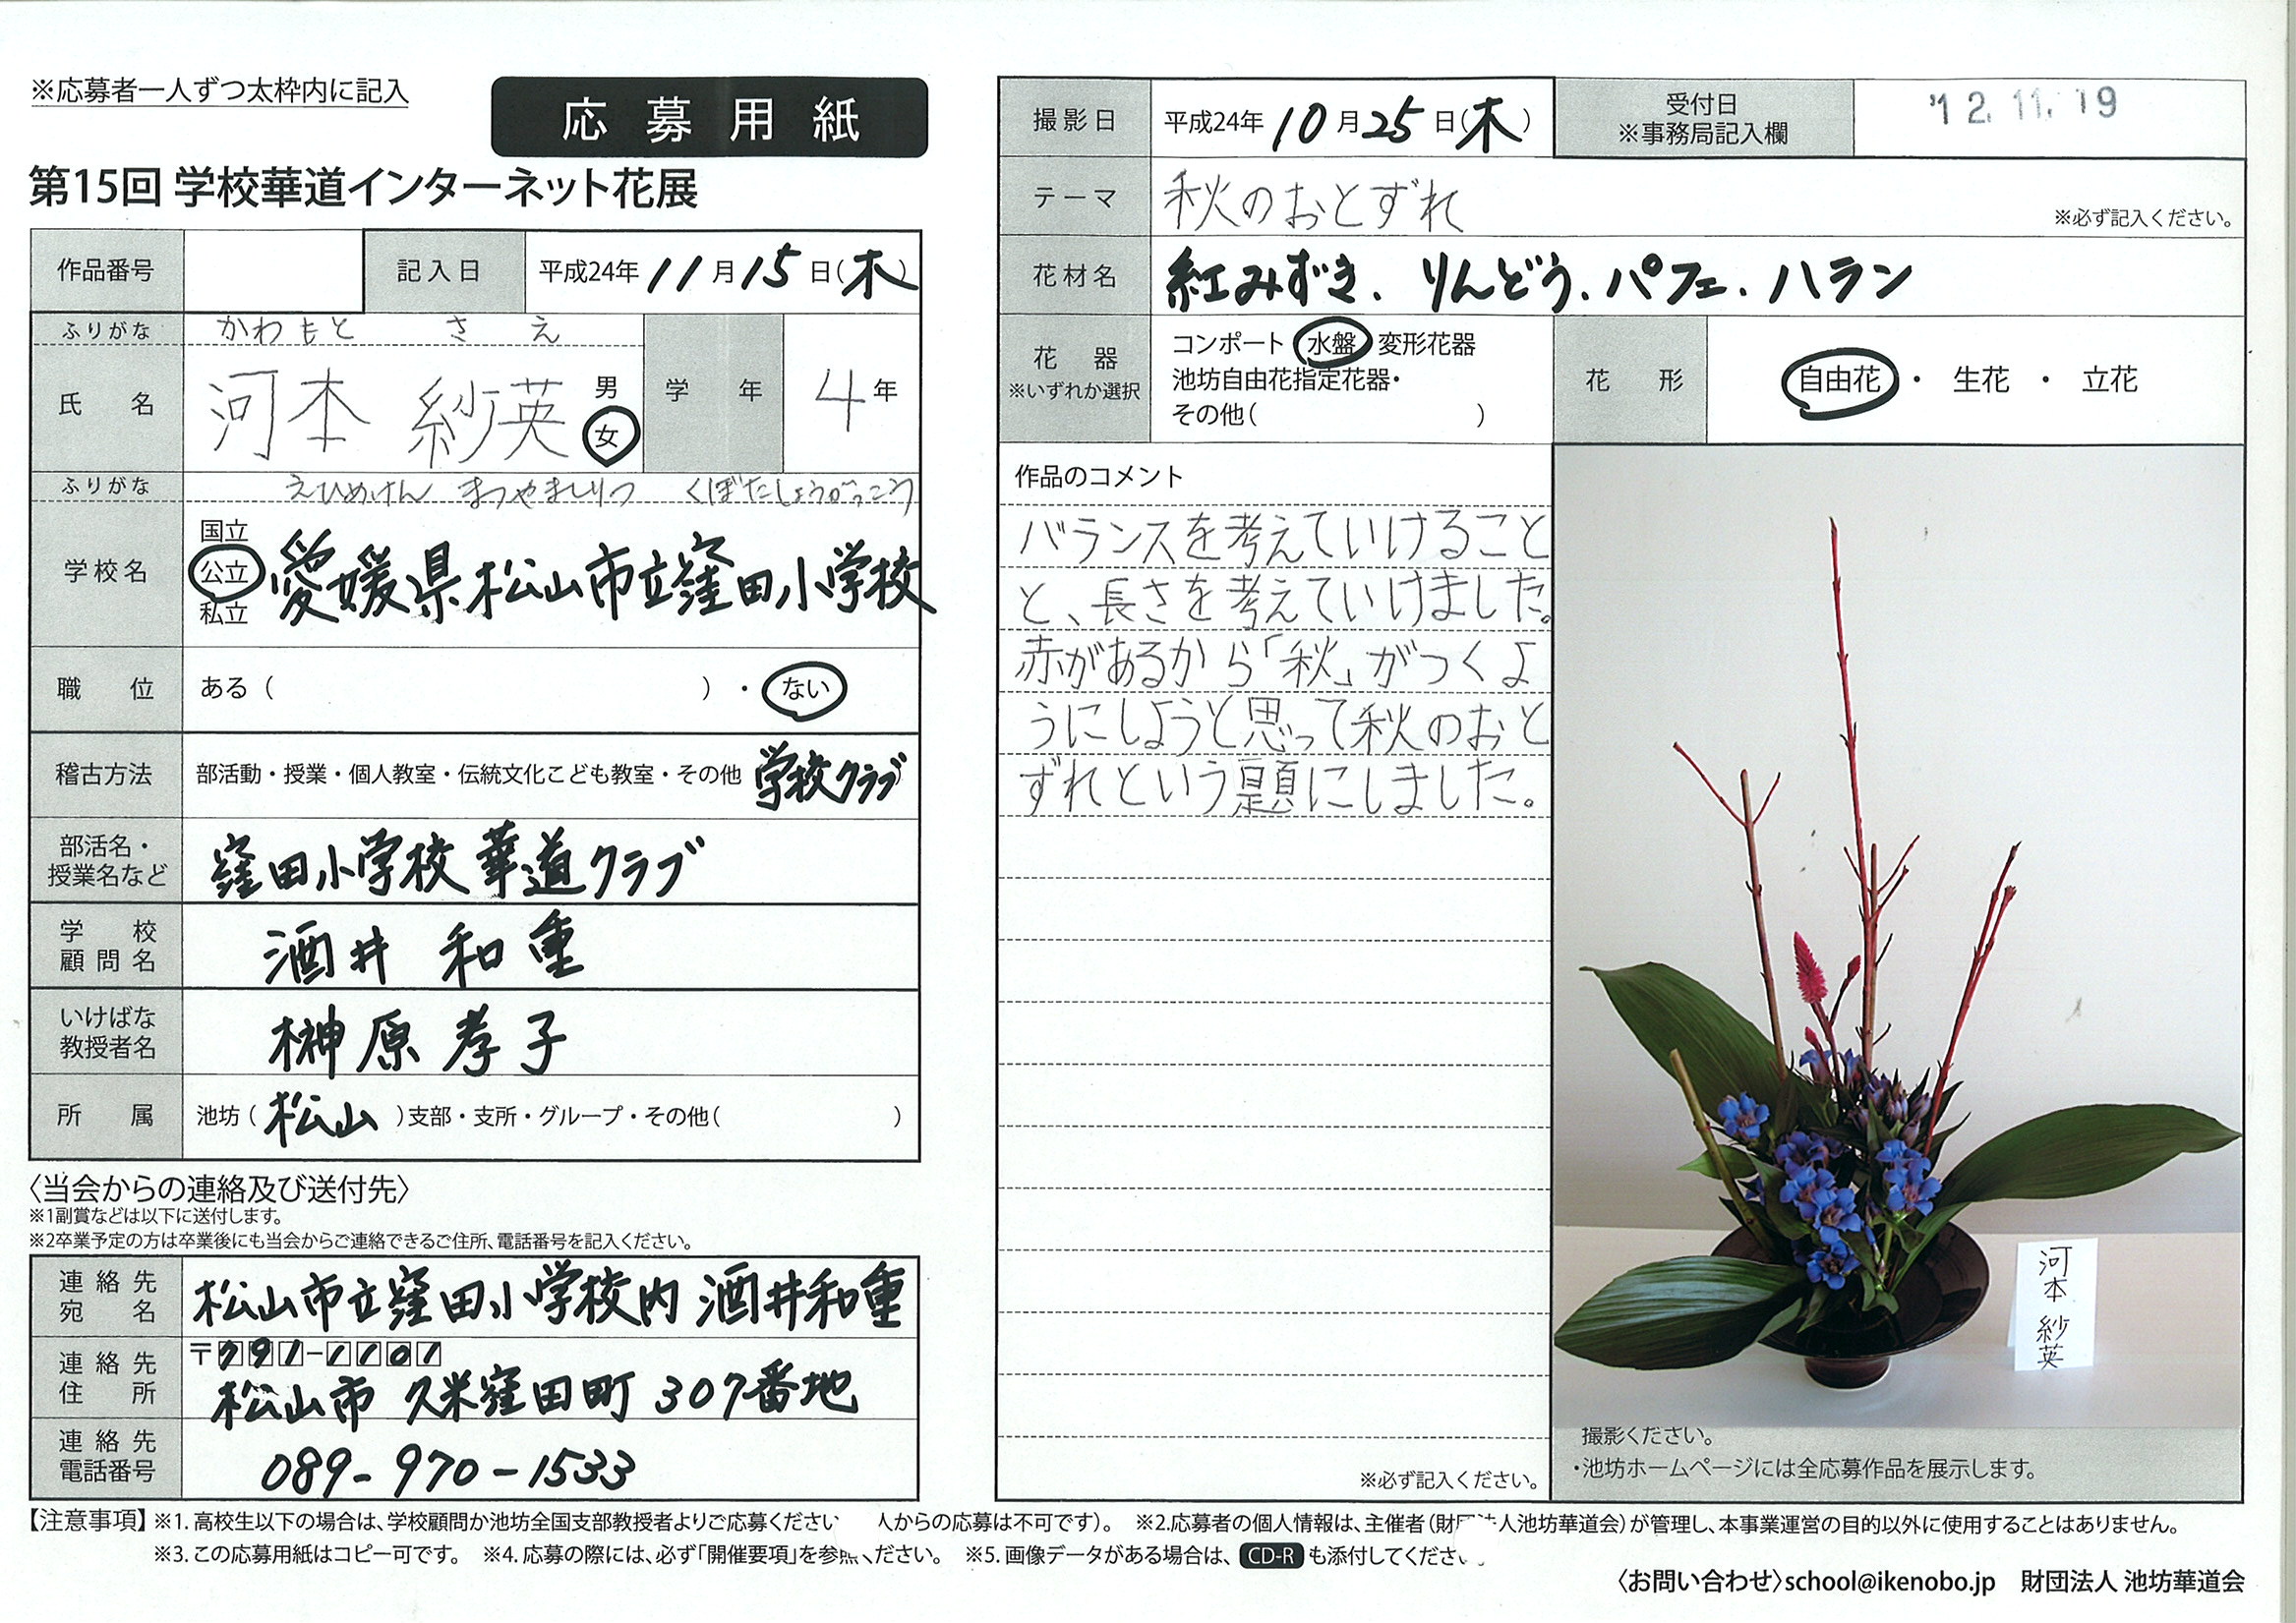 ※応募者一人ずつ太枠内に記入
応募用紙
第15回 学校華道インターネット花展
作品番号
記入日 平成24年11月15日(木)
ふりがな かわもと さえ
氏名 河本 紗英 男 女
学年 4年
ふりがな えひめけん まつやましりつ くぼたしょうがっこう
学校名 国立 公立 私立 愛媛県松山市立窪田小学校
職位 ある( )・ない
稽古方法 部活動・授業・個人教室・伝統文化こども教室・その他 学校クラブ
部活名・授業名など 窪田小学校華道クラブ
学校顧問名 酒井 和重
いけばな教授者名 榊原 孝子
所属 池坊(松山)支部・支所・グループ・その他( )
〈当会からの連絡及び送付先〉
※1副賞などは以下に送付します。
※2卒業予定の方は卒業後にも当会からご連絡できるご住所、電話番号を記入ください。
連絡先宛名 松山市立窪田小学校内 酒井和重
連絡先住所 〒791-1101
松山市 久米窪田町 307番地
連絡先電話番号 089-970-1533
撮影日 平成24年10月25日(木)
受付日 ※事務局記入欄 '12.11.19
テーマ 秋のおとずれ ※必ず記入ください。
花材名 紅みずき.りんどう.パフェ.ハラン
花器 ※いずれか選択
コンポート 水盤 変形花器
池坊自由花指定花器・
その他( )
花形 自由花・生花・立花
作品のコメント
バランスを考えていけること
と、長さを考えていけました。
赤があるから「秋」がつくよ
うにしようと思って秋のおと
ずれという題にしました。
※必ず記入ください。
河本 紗英
撮影ください。
・池坊ホームページには全応募作品を展示します。
【注意事項】※1. 高校生以下の場合は、学校顧問か池坊全国支部教授者よりご応募ください 人からの応募は不可です)。 ※2.応募者の個人情報は、主催者(財団法人池坊華道会)が管理し、本事業運営の目的以外に使用することはありません。
※3. この応募用紙はコピー可です。 ※4. 応募の際には、必ず「開催要項」を参照ください。 ※5. 画像データがある場合は、CD-Rも添付してください。
〈お問い合わせ〉school@ikenobo.jp 財団法人 池坊華道会